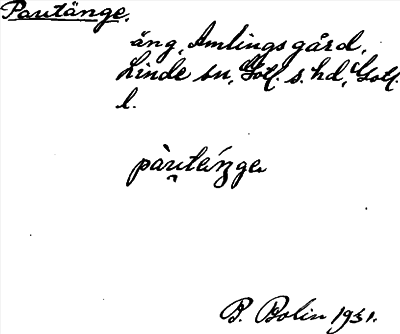 Pautänge.
äng, Amlings gård,
Linde sn, Gotl. s. hd, Gotl.
l.
pàu̯téŋge
B. Bolin 1931.